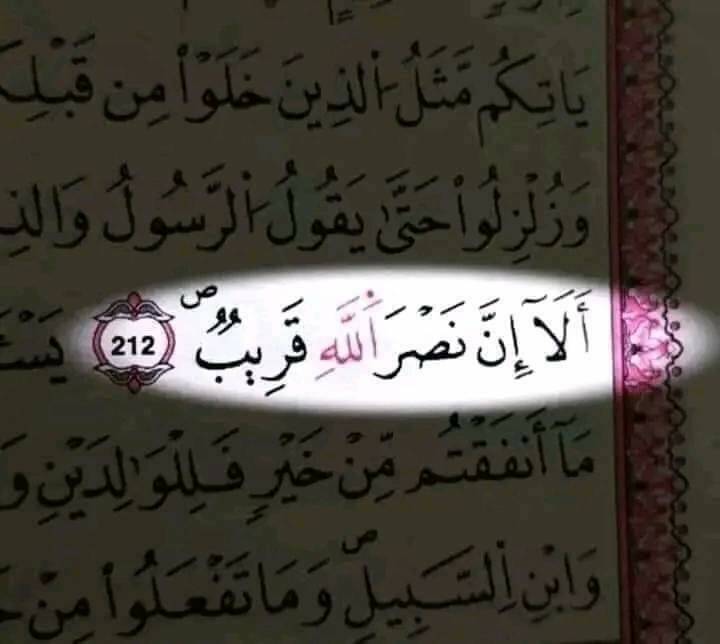 يَاتِكُم مَّثَلُ اُ۬لذِينَ خَلَوْاْ مِن
وَزُلْزِلُواْ حَتَّىٰ يَقُولُ اُ۬لرَّسُولُ
أَلَآ إِنَّ نَصْرَ اَ۬للَّهِ قَرِيبٌۖ 212
مَآ أَنفَقْتُم مِّنْ خَيْرٍ فَلِلْوَٰلِدَيْنِ
وَابْنِ اِ۬لسَّبِيلِۖ وَمَا تَفْعَلُواْ مِنْ